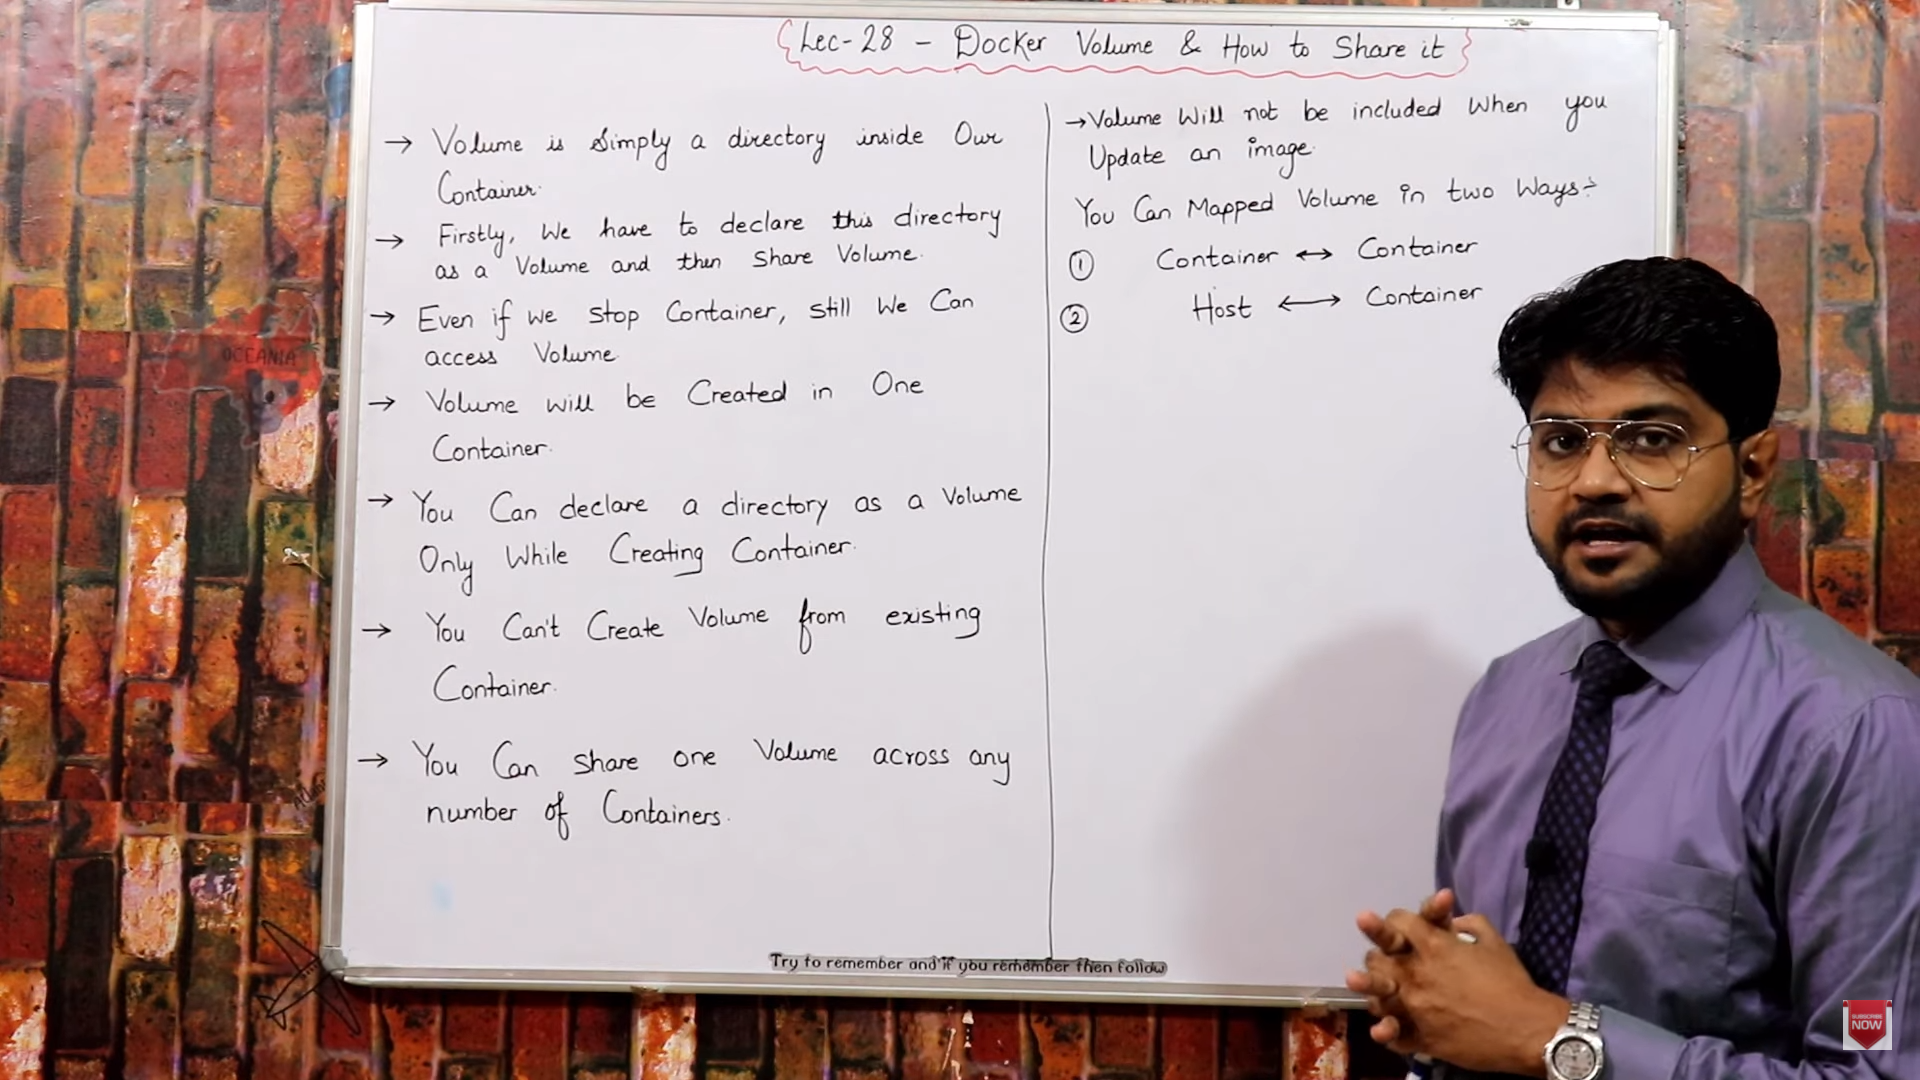 Lec-28 - Docker Volume & How to Share it
→ Volume is simply a directory inside Our
Container.
→ Firstly, We have to declare this directory
as a Volume and then Share Volume.
→ Even if we stop Container, still We Can
access Volume.
→ Volume will be Created in One
Container.
→ You Can declare a directory as a Volume
Only While Creating Container.
→ You Can't Create Volume from existing
Container.
→ You Can share one Volume across any
number of Containers.
→ Volume Will not be included When you
Update an image.
You Can Mapped Volume in two Ways:-
① Container ↔ Container
② Host ↔ Container
OCEANIA
Try to remember and if you remember then follow
SUBSCRIBE
NOW